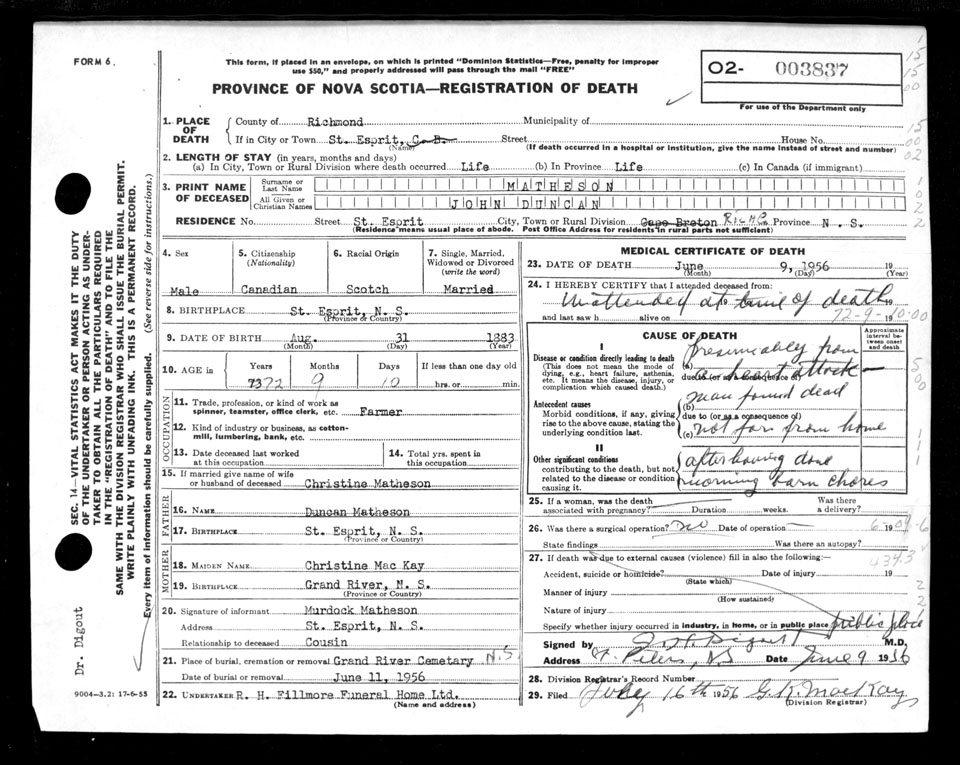 FORM 6.
This form, if placed in an envelope, on which is printed "Dominion Statistics—Free, penalty for improper
use $50," and properly addressed will pass through the mail "FREE"
PROVINCE OF NOVA SCOTIA—REGISTRATION OF DEATH
O2- 003837
For use of the Department only
1. PLACE OF DEATH
County of Richmond Municipality of
If in City or Town St. Esprit, C. B. Street House No.
(Name) (If death occurred in a hospital or institution, give the name instead of street and number)
2. LENGTH OF STAY (in years, months and days)
(a) In City, Town or Rural Division where death occurred Life (b) In Province Life (c) In Canada (if immigrant)
3. PRINT NAME OF DECEASED
Surname or Last Name MATHESON
All Given or Christian Names JOHN DUNCAN
RESIDENCE No. Street St. Esprit City, Town or Rural Division Cape Breton Rich Province N. S.
(Residence means usual place of abode. Post Office Address for residents in rural parts not sufficient)
4. Sex
Male
5. Citizenship
(Nationality)
Canadian
6. Racial Origin
Scotch
7. Single, Married,
Widowed or Divorced
(write the word)
Married
8. BIRTHPLACE St. Esprit, N. S.
(Province or Country)
9. DATE OF BIRTH Aug. 31 1883
(Month) (Day) (Year)
10. AGE in
Years Months Days If less than one day old
73 72 9 10 hrs. or min.
OCCUPATION
11. Trade, profession, or kind of work as
spinner, teamster, office clerk, etc. Farmer
12. Kind of industry or business, as cotton-
mill, lumbering, bank, etc.
13. Date deceased last worked
at this occupation
14. Total yrs. spent in
this occupation
15. If married give name of wife
or husband of deceased Christine Matheson
FATHER
16. NAME Duncan Matheson
17. BIRTHPLACE St. Esprit, N. S.
(Province or Country)
MOTHER
18. MAIDEN NAME Christine Mac Kay
19. BIRTHPLACE Grand River, N. S.
(Province or Country)
20. Signature of informant Murdock Matheson
Address St. Esprit, N. S.
Relationship to deceased Cousin
21. Place of burial, cremation or removal Grand River Cemetary N.S.
Date of burial or removal June 11, 1956
22. UNDERTAKER R. H. Fillmore Funeral Home Ltd.
(Name and address)
MEDICAL CERTIFICATE OF DEATH
23. DATE OF DEATH June 9, 1956 19
(Month) (Day) (Year)
24. I HEREBY CERTIFY that I attended deceased from:
Unattended at time of death 19
and last saw h alive on 72-9-10-00 19
CAUSE OF DEATH
Approximate
interval be-
tween onset
and death
I
Disease or condition directly leading to death
(This does not mean the mode of
dying, e.g., heart failure, asthenia,
etc. It means the disease, injury, or
complication which caused death.)
presumably from
due to (or as a consequence of)
a heart attack—
Antecedent causes
Morbid conditions, if any, giving
rise to the above cause, stating the
underlying condition last.
man found dead
(b)
due to (or as a consequence of)
(c) not far from home
II
Other significant conditions
contributing to the death, but not
related to the disease or condition
causing it.
after having done
morning barn chores
25. If a woman, was the death
associated with pregnancy? Duration weeks Was there
a delivery?
26. Was there a surgical operation? No Date of operation 19
State findings Was there an autopsy?
27. If death was due to external causes (violence) fill in also the following:—
434.3
Accident, suicide or homicide? Date of injury 19
(State which)
Manner of injury
(How sustained)
Nature of injury
Specify whether injury occurred in industry, in home, or in public place public place
Signed by M.D.
Address St. Peters, N.S Date June 9 1956
28. Division Registrar's Record Number
29. Filed July 16th 1956 G.R. MacKay
(Division Registrar)
SEC. 14—VITAL STATISTICS ACT MAKES IT THE DUTY
OF THE UNDERTAKER OR PERSON ACTING AS UNDER-
TAKER TO OBTAIN ALL THE PARTICULARS REQUIRED
IN THE "REGISTRATION OF DEATH" AND TO FILE THE
SAME WITH THE DIVISION REGISTRAR WHO SHALL ISSUE THE BURIAL PERMIT.
WRITE PLAINLY WITH UNFADING INK. THIS IS A PERMANENT RECORD.
Every item of information should be carefully supplied. (See reverse side for instructions.)
Dr. Digout
9004—3.2: 17-6-55